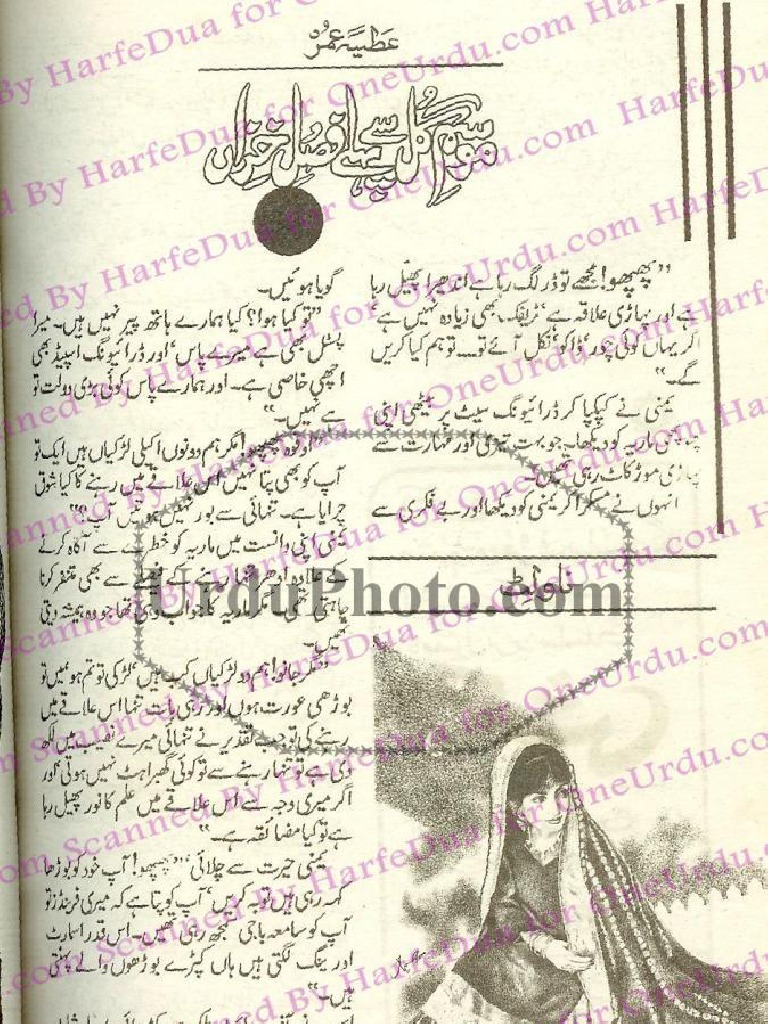 عطیہ عمر
موسمِ گل سے پہلے فصلِ خزاں
”پھپھو! مجھے تو ڈر لگ رہا ہے اندھیرا پھیل رہا
ہے اور پہاڑی علاقہ ہے‘ ٹریفک بھی زیادہ نہیں ہے‘
اگر یہاں کوئی چور‘ ڈاکو‘ نکل آئے تو۔۔۔ تو ہم کیا کریں
گے۔“
یمنی نے کپکپا کر ڈرائیونگ سیٹ پر بیٹھی اپنی
پھپھی ماریہ کو دیکھا۔ جو بہت تیزی اور مہارت سے
پہاڑی موڑ کاٹ رہی تھیں۔
انہوں نے مسکرا کر یمنی کو دیکھا اور بے فکری سے
ناولٹ
گویا ہوئیں۔
”تو کیا ہوا؟ کیا ہمارے ہاتھ پیر نہیں ہیں۔ میرا
پسٹل بھی ہے میرے پاس‘ اور ڈرائیونگ اسپیڈ بھی
اچھی خاصی ہے۔ اور ہمارے پاس کوئی بڑی دولت تو
ہے نہیں۔“
”اوفوہ پھپھو! مگر ہم دونوں اکیلی لڑکیاں ہیں ایک تو
آپ کو بھی پتا نہیں اس علاقے میں رہنے کا کیا شوق
چرایا ہے۔ تنہائی سے بور نہیں ہوتیں آپ؟“
یمنی اپنی دانست میں ماریہ کو خطرے سے آگاہ کرنے
کے علاوہ ادھر تنہا رہنے کے فیصلے سے بھی متنفر کرنا
چاہتی تھی۔ مگر ماریہ کا جواب وہی تھا جو وہ ہمیشہ دیتی
تھیں۔
ہم دو لڑکیاں کب ہیں‘ لڑکی تو تم ہو‘ میں تو
بوڑھی عورت ہوں اور رہی بات تنہا اس علاقے میں
رہنے کی تو جب تقدیر نے تنہائی میرے نصیب میں لکھ
دی ہے تو تنہا رہنے سے تو کوئی گھبراہٹ نہیں ہوتی‘ اور
اگر میری وجہ سے اس علاقے میں علم کا نور پھیل رہا
ہے تو کیا مضائقہ ہے۔“
یمنی حیرت سے چلائی ”پھپھو! آپ خود کو بوڑھا
کہہ رہی ہیں توبہ کریں‘ آپ کو پتا ہے کہ میری فرینڈز تو
آپ کو سامعہ باجی سمجھ رہی تھیں۔ اس قدر اسمارٹ
اور ینگ لگتی ہیں ہاں کپڑے بوڑھوں والے پہنتی
ہیں۔“
UrduPhoto.com
Scanned By HarfeDua for OneUrdu.com